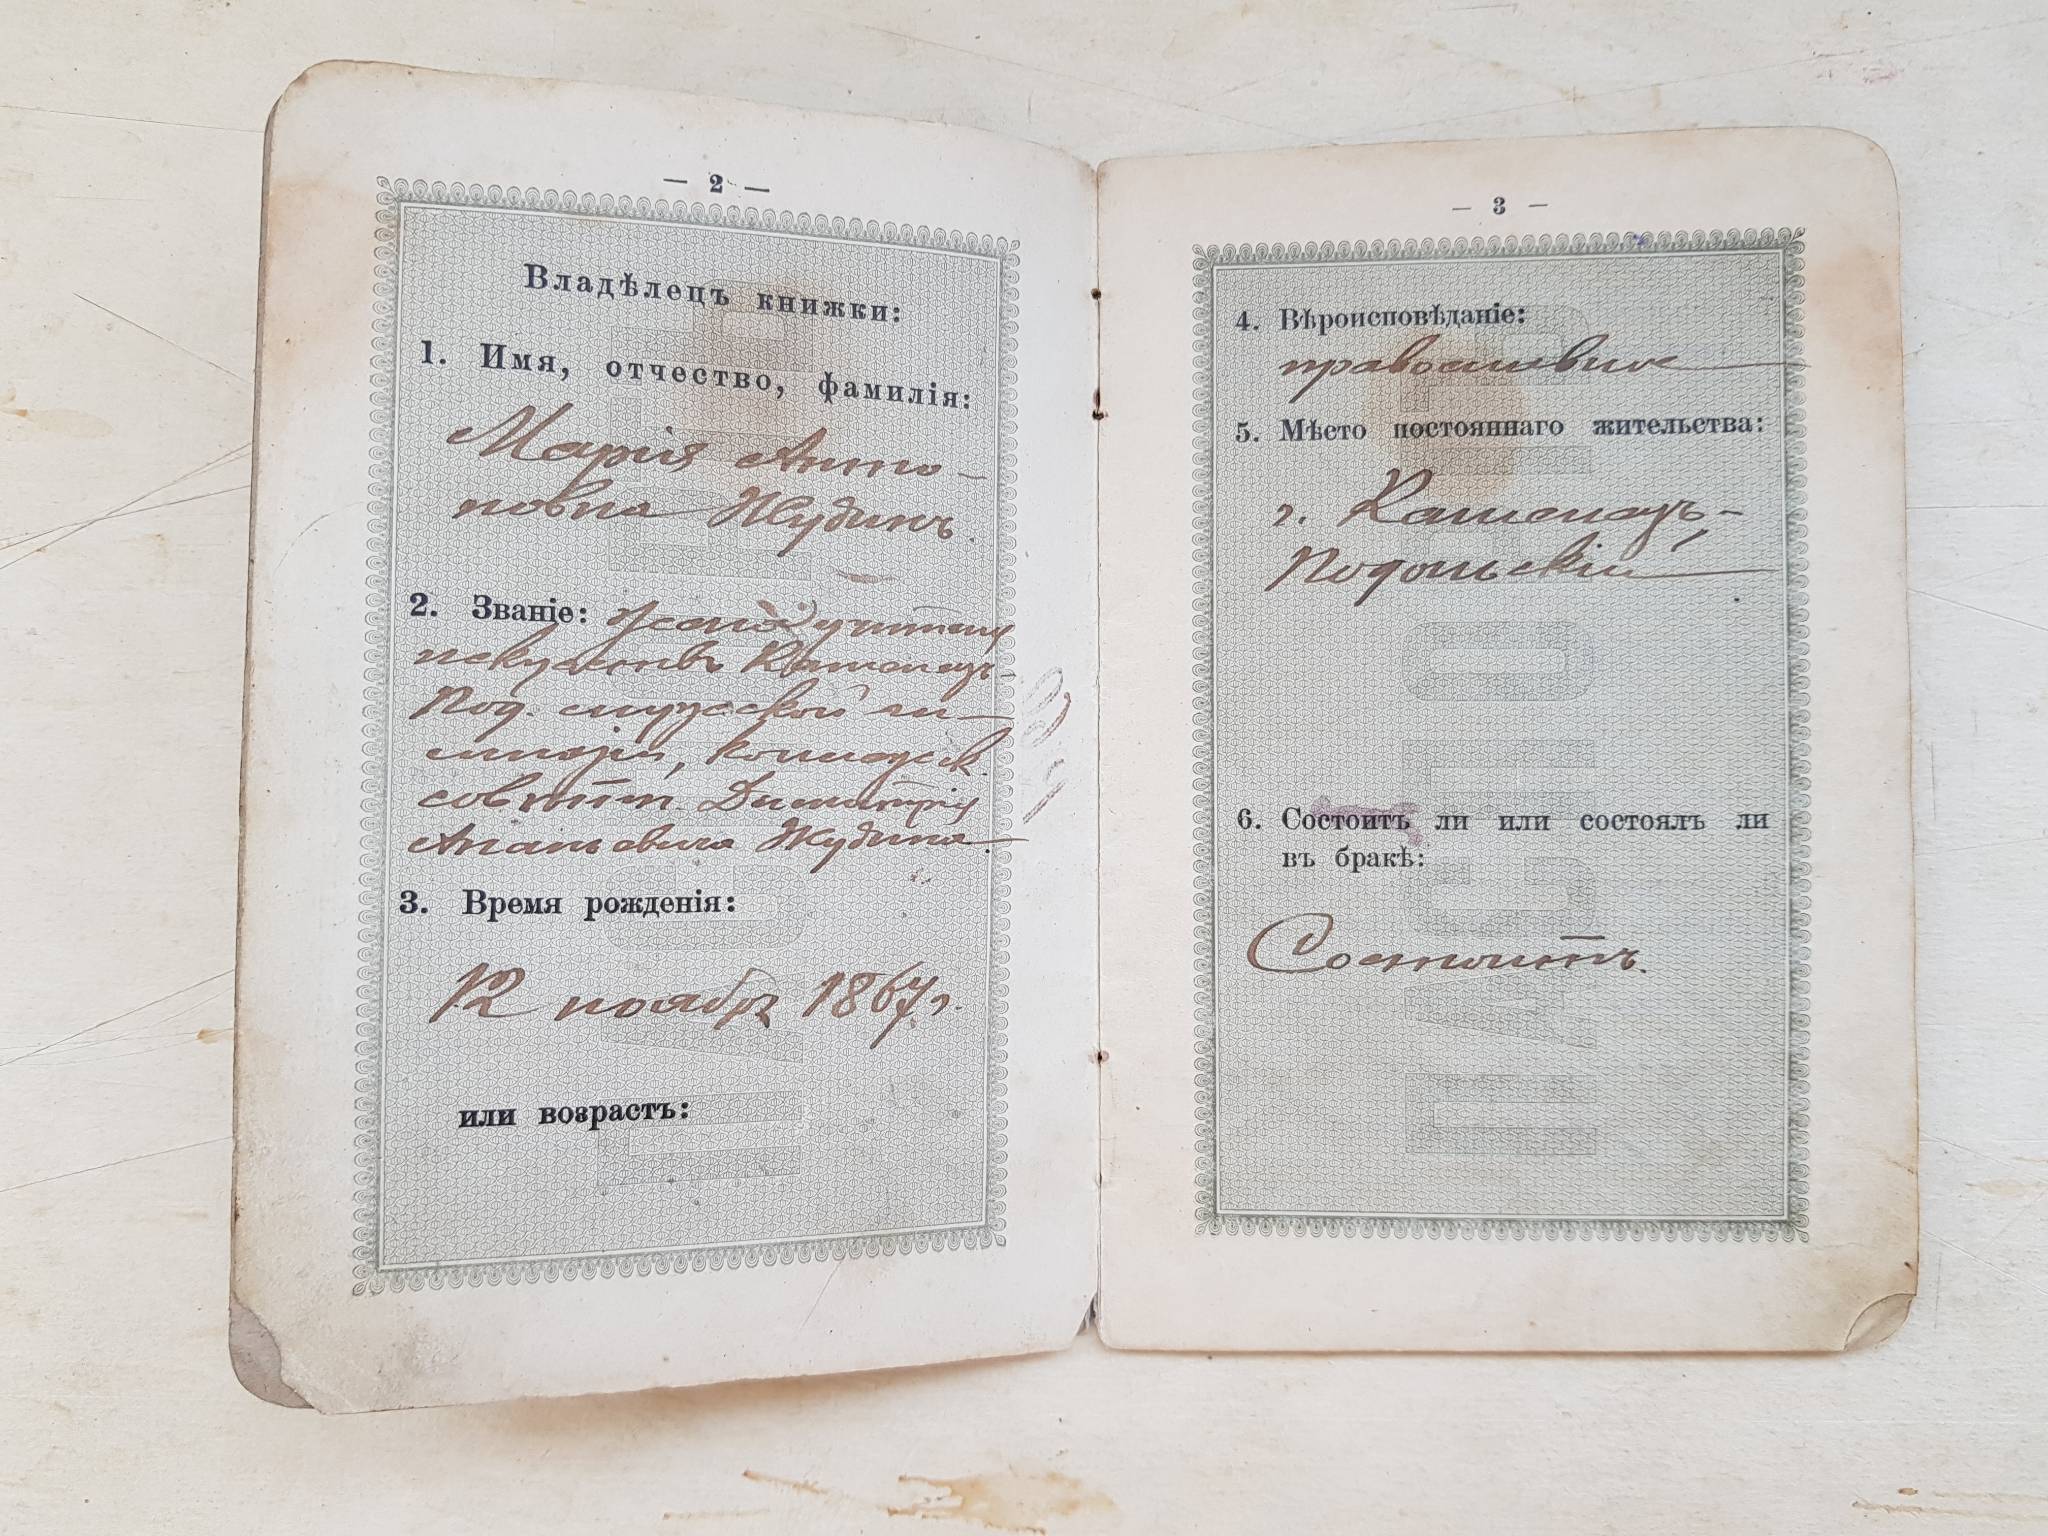 — 2 —
Владѣлецъ книжки:
1. Имя, отчество, фамилія:
Марія Анто-
новна Жудинъ.
2. Званіе: Жена учителя
искуствъ Каменецъ-
Под. духовской
семинаріи,
совѣтн. Димитрія
Ананьевича Жудина.
3. Время рожденія:
12 ноября 1867 г.
или возрастъ:
— 3 —
4. Вѣроисповѣданіе:
православное
5. Мѣсто постояннаго жительства:
г. Каменецъ-
Подольскій
6. Состоитъ ли или состоялъ ли
въ бракѣ:
Состоитъ.
ПАСПОРТЪ